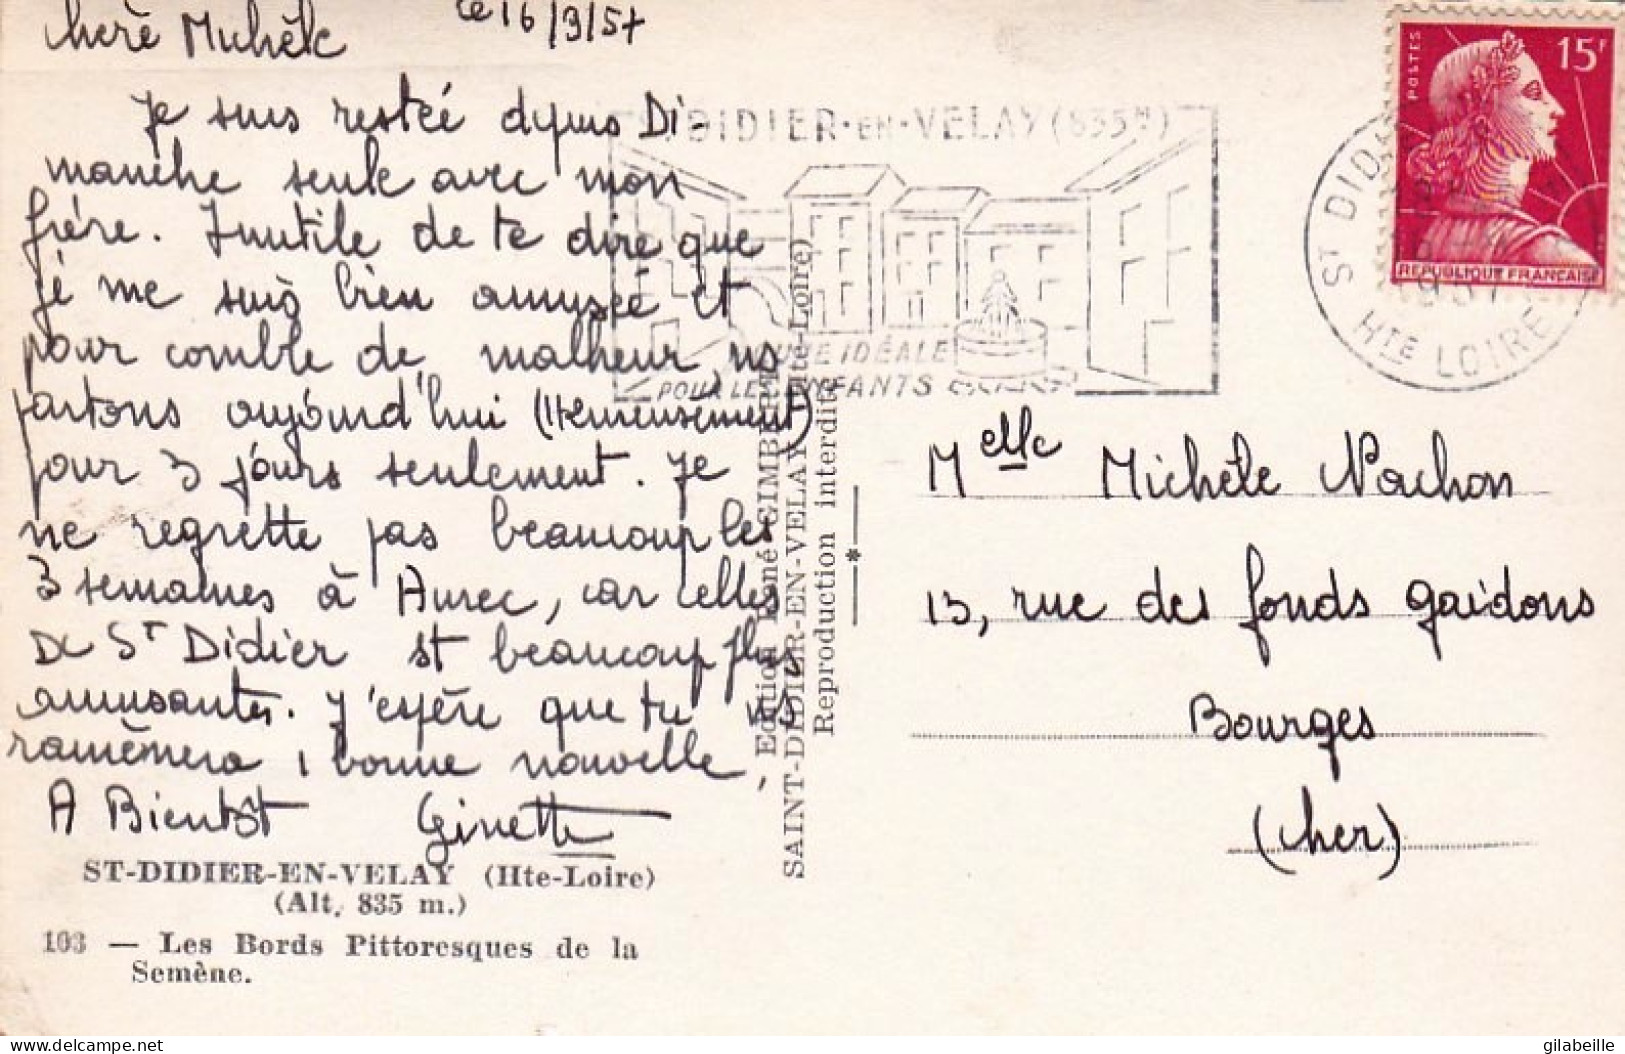 chère Michèle
le 16/9/57
Je suis restée depuis Di-
manche seule avec mon
frère. Inutile de te dire que
je me suis bien amusée et
pour comble de malheur, ns
partons aujourd'hui (Heureusement)
pour 3 jours seulement. Je
ne regrette pas beaucoup les
3 semaines à Aurec, car celles
de St Didier st beaucoup plus
amusantes. J'espère que tu ns
ramèneras 1 bonne nouvelle,
A Bientôt Ginette
ST-DIDIER-EN-VELAY (Hte-Loire)
(Alt. 835 m.)
103 — Les Bords Pittoresques de la
Semène.
Edition René GIMBERT
SAINT-DIDIER-EN-VELAY (Hte-Loire)
Reproduction interdite
DIDIER-EN-VELAY (835M)
IDÉALE
POUR LES ENFANTS
POSTES
15F
REPUBLIQUE FRANÇAISE
ST DID
HTE LOIRE
Melle Michèle Vachon
13, rue des fonds gaidons
Bourges
(cher)
gilabeille
delcampe.net